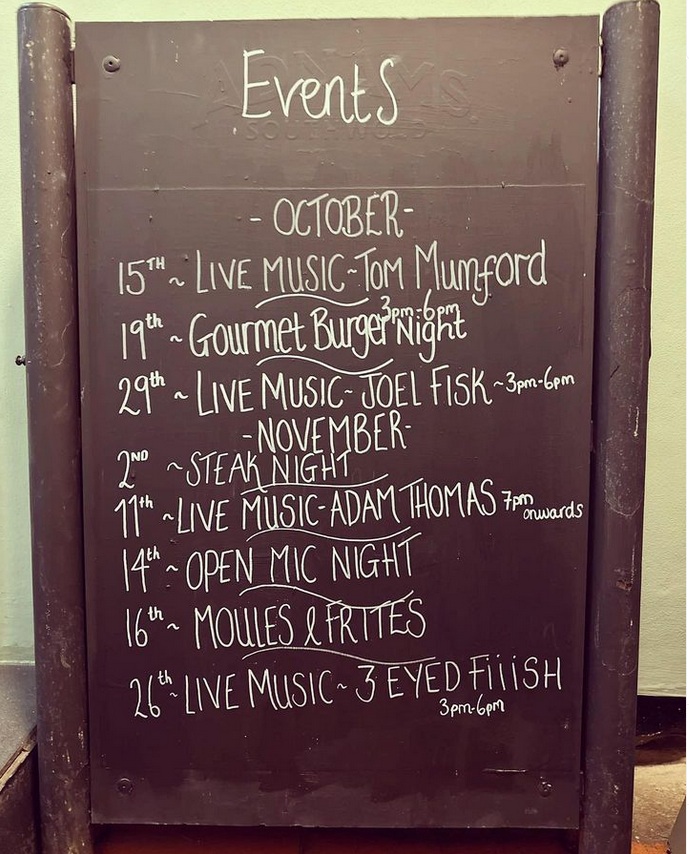 Events
ADNAMS
SOUTHWOLD
- OCTOBER -
15TH ~ LIVE MUSIC ~ TOM MUMford
3pm-6pm
19th ~ Gourmet Burger Night
29th ~ LIVE MUSIC ~ JOEL FISK ~ 3pm-6pm
- NOVEMBER -
2ND ~ STEAK NIGHT
11th ~ LIVE MUSIC - ADAM THOMAS 7pm
onwards
14th ~ OPEN MIC NIGHT
16th ~ MOULES & FRITES
26th ~ LIVE MUSIC ~ 3 EYED FiiiSH
3pm-6pm